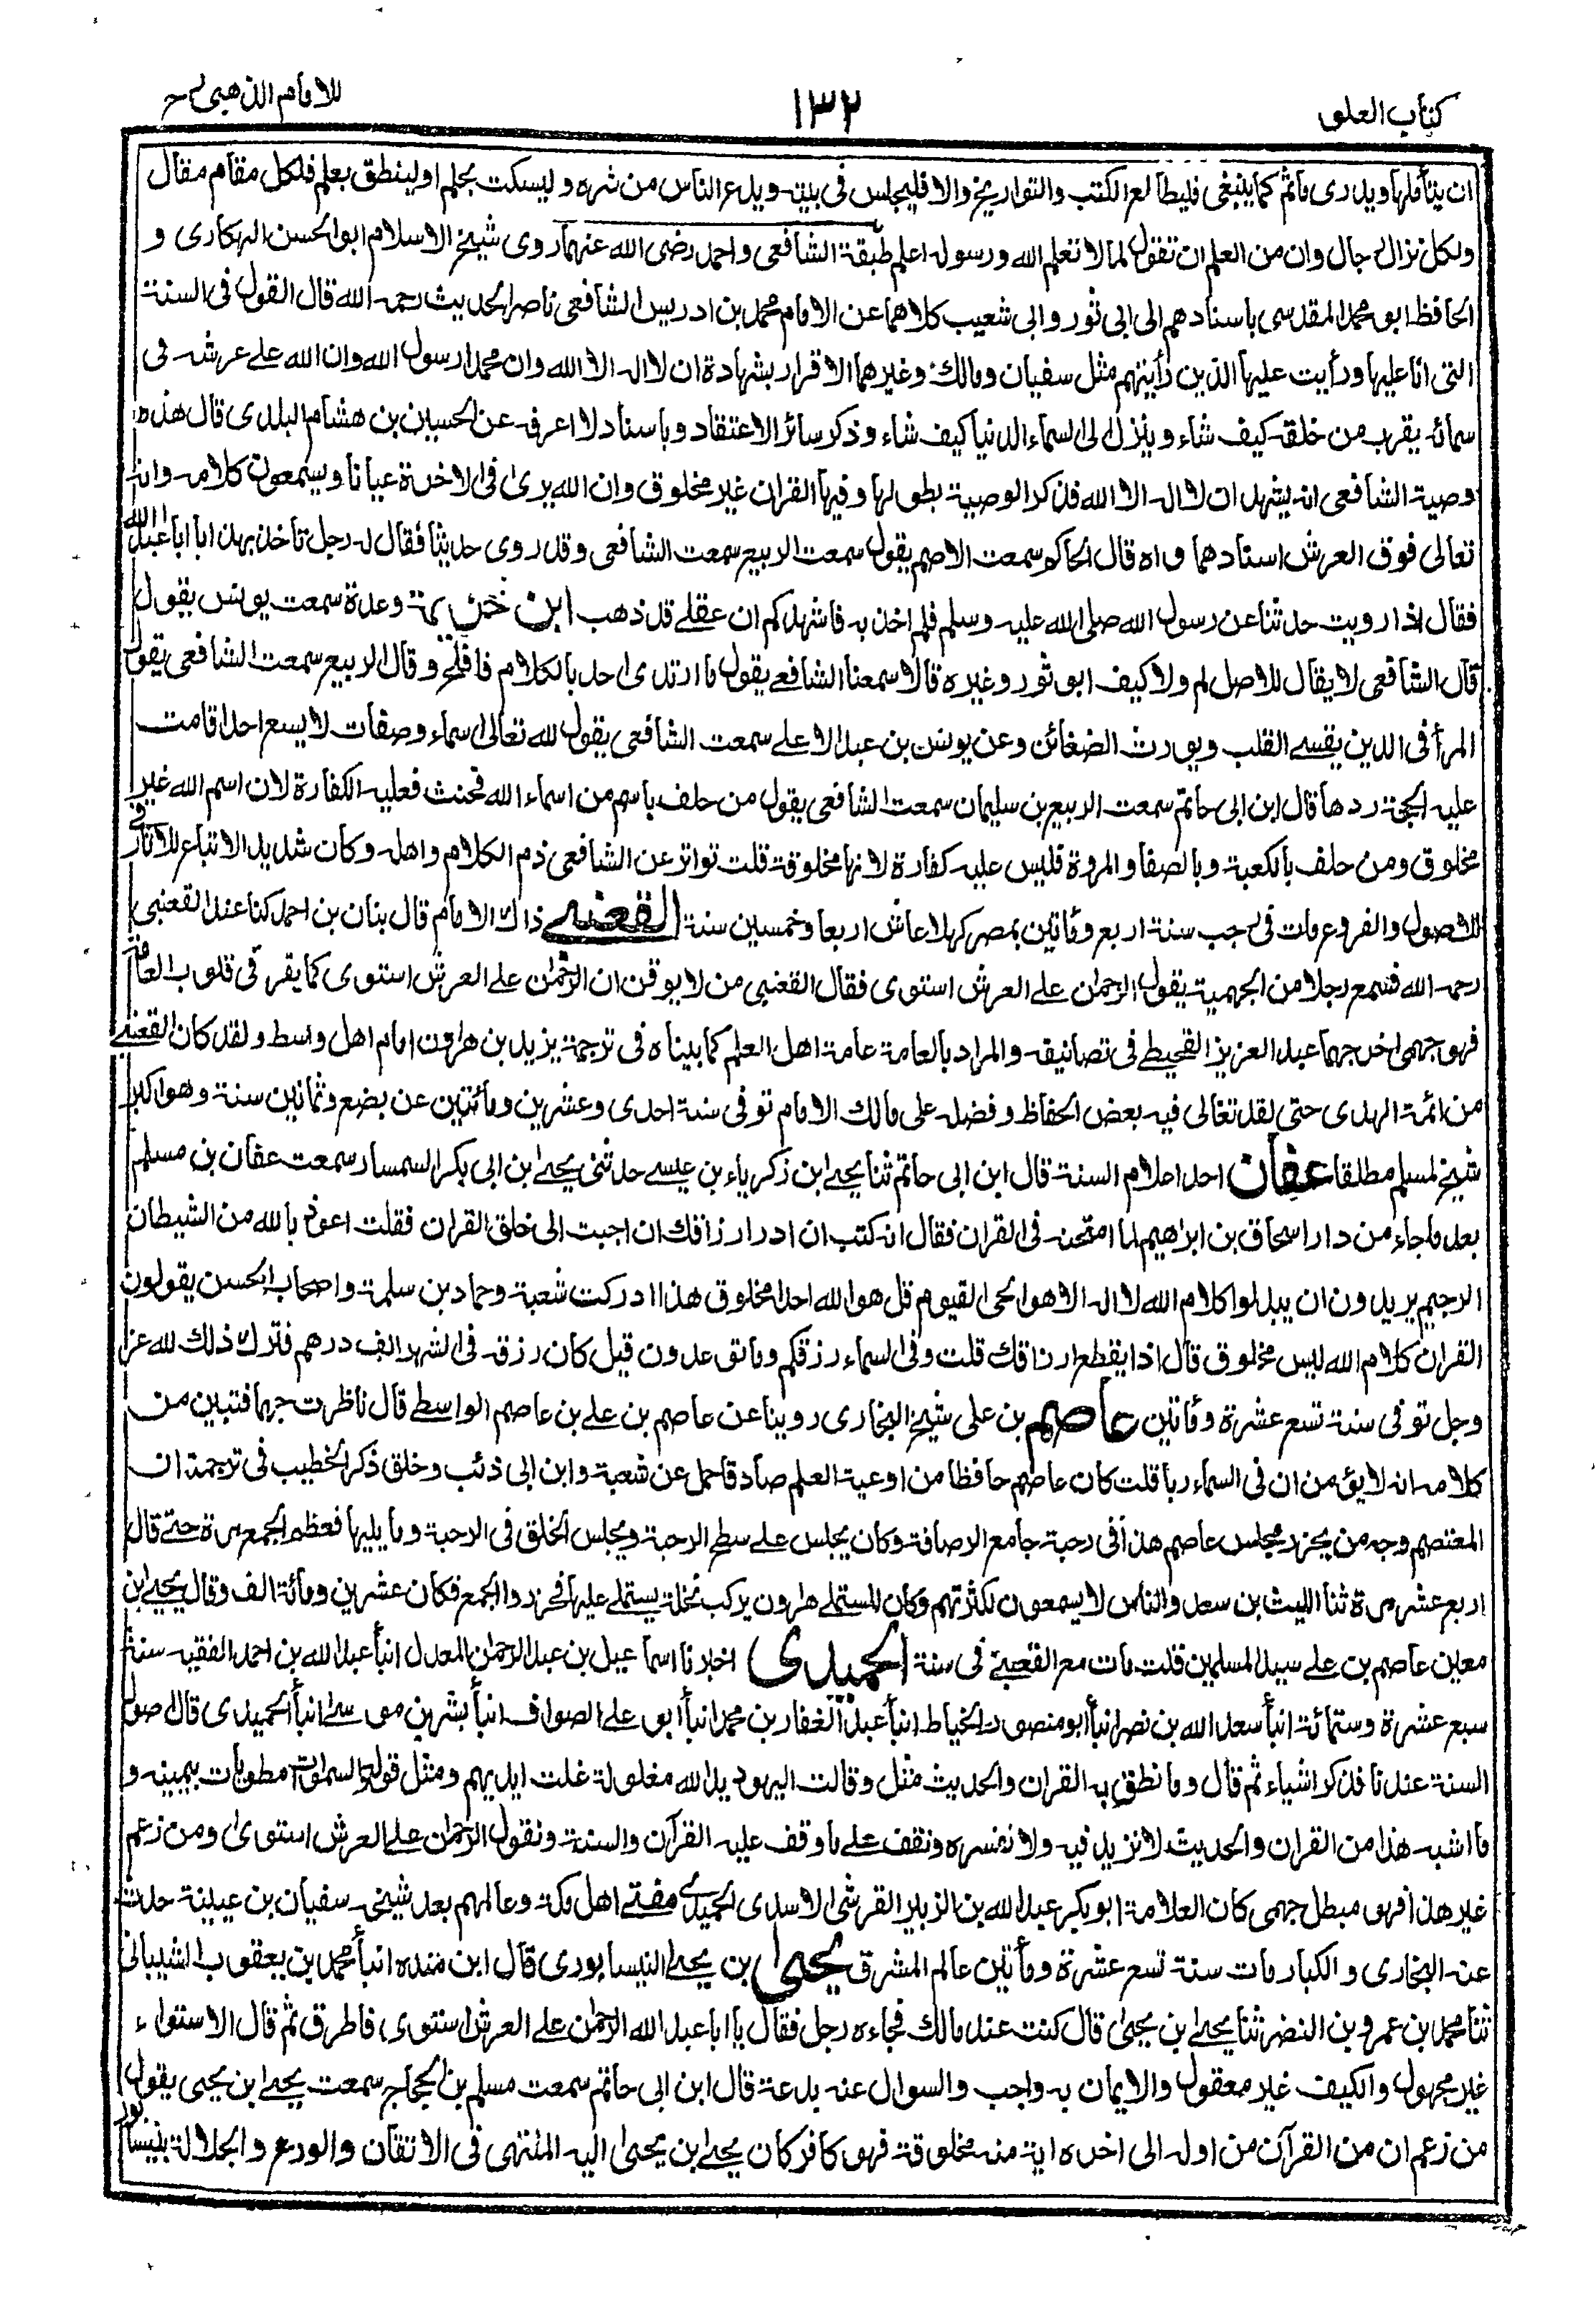 كتاب العلو
١٣٢
للامام الذهبي رح
ان يتأملها ويدري ماثم كما ينبغي فليطالع الكتب والتواريخ والا فليجلس في بيته ويدع الناس من شره وليسكت بحلم او لينطق بعلم فلكل مقام مقال
ولكل نزال رجال وان من العلم ان تقول لما لا تعلم الله ورسوله اعلم طبقة الشافعي واحمد رضى الله عنهما روى شيخ الاسلام ابو الحسن الهكاري و
الحافظ ابو محمد المقدسي باسنادهم الى ابي ثور وابي شعيب كلاهما عن الامام محمد بن ادريس الشافعي ناصر الحديث رحمه الله قال القول في السنة
التى انا عليها ورأيت عليها الذين رأيتهم مثل سفيان ومالك وغيرهما الاقرار بشهادة ان لا اله الا الله وان محمدا رسول الله وان الله على عرشه فى
سمائه يقرب من خلقه كيف شاء وينزل الى السماء الدنيا كيف شاء وذكر سائر الاعتقاد وباسناد لا اعرفه عن الحسين بن هشام البلدى قال هذه
وصية الشافعى انه يشهد ان لا اله الا الله فذكر الوصية بطولها وفيها القران غير مخلوق وان الله يرى فى الاخرة عيانا ويسمعون كلامه وانه
تعالى فوق العرش اسنادهما واه قال الحاكم سمعت الاصم يقول سمعت الربيع سمعت الشافعى وقد روى حديثا فقال له رجل تأخذ بهذا يا ابا عبد الله
فقال اذا رويت حديثا عن رسول الله صلى الله عليه وسلم فلم اخذ به فاشهدكم ان عقلى قد ذهب ابن خزيمة وعدة سمعت يونس يقول
قال الشافعى لا يقال للاصل لم ولا كيف ابو ثور وغيره قالا سمعنا الشافعى يقول ما ارتدى احد بالكلام فافلح وقال الربيع سمعت الشافعى يقول
المرأ فى الدين يقسى القلب ويورث الضغائن وعن يونس بن عبد الاعلى سمعت الشافعى يقول لله تعالى اسماء وصفات لا يسع احدا قامت
عليه الحجة ردها قال ابن ابى حاتم سمعت الربيع بن سليمان سمعت الشافعى يقول من حلف باسم من اسماء الله فحنث فعليه الكفارة لان اسم الله غير
مخلوق ومن حلف بالكعبة وبالصفا والمروة فليس عليه كفارة لانها مخلوقة قلت تواتر عن الشافعى ذم الكلام واهله وكان شديد الاتباع للاثار فى
الاصول والفروع مات فى رجب سنة اربع ومأتين بمصر كهلا عاش اربعا وخمسين سنة القعنبى ذاك الامام قال بنان بن احمد كنا عند القعنبى
رحمه الله فسمع رجلا من الجهمية يقول الرحمٰن على العرش استوى فقال القعنبى من لا يوقن ان الرحمٰن على العرش استوى كما يقر فى قلوب العامة
فهو جهمى اخرجهما عبد العزيز القحيطى فى تصانيفه والمراد بالعامة عامة اهل العلم كما بيناه فى ترجمة يزيد بن هارون امام اهل واسط ولقد كان القعنبى
من ائمة الهدى حتى لقد تغالى فيه بعض الحفاظ وفضله على مالك الامام توفى سنة احدى وعشرين ومائتين عن بضع وثمانين سنة وهو اكبر
شيخ لمسلم مطلقا عفان احد اعلام السنة قال ابن ابى حاتم ثنا يحيى ابن زكرياء بن عيسى حدثنى يحيى ابن ابى بكر السمسار سمعت عفان بن مسلم
بعد ما جاء من دار اسحاق بن ابراهيم لما امتحنه فى القران فقال انه كتب ان ادر ارزاقك ان اجبت الى خلق القران فقلت اعوذ بالله من الشيطان
الرجيم يريدون ان يبدلوا كلام الله لا اله الا هو الحى القيوم قل هو الله احد مخلوق هذا ادركت شعبة وحماد بن سلمة واصحاب الحسن يقولون
القران كلام الله ليس مخلوق قال اذا يقطع ارزاقك قلت وفى السماء رزقكم وما توعدون قيل كان رزقه فى الشهر الف درهم فترك ذلك لله عز
وجل توفى سنة تسع عشرة ومأتين عاصم بن على شيخ البخارى روينا عن عاصم بن على بن عاصم الواسطى قال ناظرت جهما فتبين من
كلامه انه لا يؤمن ان فى السماء ربا قلت كان عاصم حافظا من اوعية العلم صادقا حمل عن شعبة وابن ابى ذئب وخلق ذكر الخطيب فى ترجمته ان
المعتصم وجه من يحزر مجلس عاصم هذا فى رحبة جامع الرصافة وكان يجلس على سطح الرحبة ويجلس الخلق فى الرحبة وما يليها فعظم الجمع مرة حتى قال
اربع عشر مرة ثنا الليث بن سعد والناس لا يسمعون لكثرتهم وكان المستملى هارون يركب نخلة يستملى عليها فحزروا الجمع فكان عشرين ومائة الف وقال يحيى ابن
معين عاصم بن على سيد المسلمين قلت مات مع القعنبى فى سنة الحميدى اخبرنا اسماعيل بن عبد الرحمٰن المعدل انبأ عبد الله بن احمد الفقيه سنة
سبع عشرة وستمائة انبأ سعد الله بن نصر انبأ ابو منصور الخياط انبأ عبد الغفار بن محمد انبأ ابو على الصواف انبأ بشر بن موسى انبأ الحميدى قال اصول
السنة عندنا فذكر اشياء ثم قال وما نطق به القران والحديث مثل وقالت اليهود يد الله مغلولة غلت ايديهم ومثل قوله والسموات مطويات بيمينه و
ما اشبه هذا من القران والحديث لا نزيد فيه ولا نفسره ونقف على ما وقف عليه القرآن والسنة ونقول الرحمٰن على العرش استوى ومن زعم
غير هذا فهو مبطل جهمى كان العلامة ابو بكر عبد الله بن الزبير القرشى الاسدى الحميدى مفتى اهل مكة وعالمهم بعد شيخه سفيان بن عيينة حدث
عنه البخارى والكبار مات سنة تسع عشرة ومأتين عالم المشرق يحيى بن يحيى النيسابورى قال ابن منده انبأ محمد بن يعقوب الشيبانى
ثنا محمد بن عمرو بن النضر ثنا يحيى ابن يحيى قال كنت عند مالك فجاءه رجل فقال يا ابا عبد الله الرحمٰن على العرش استوى، فاطرق ثم قال الاستواء
غير مجهول والكيف غير معقول والايمان به واجب والسوال عنه بدعة قال ابن ابى حاتم سمعت مسلم بن الحجاج سمعت يحيى ابن يحيى يقول
من زعم ان من القرآن من اوله الى اخره اية منه مخلوقة فهو كافر كان يحيى ابن يحيى اليه المنتهى فى الاتقان والورع والجلالة بنيسابور